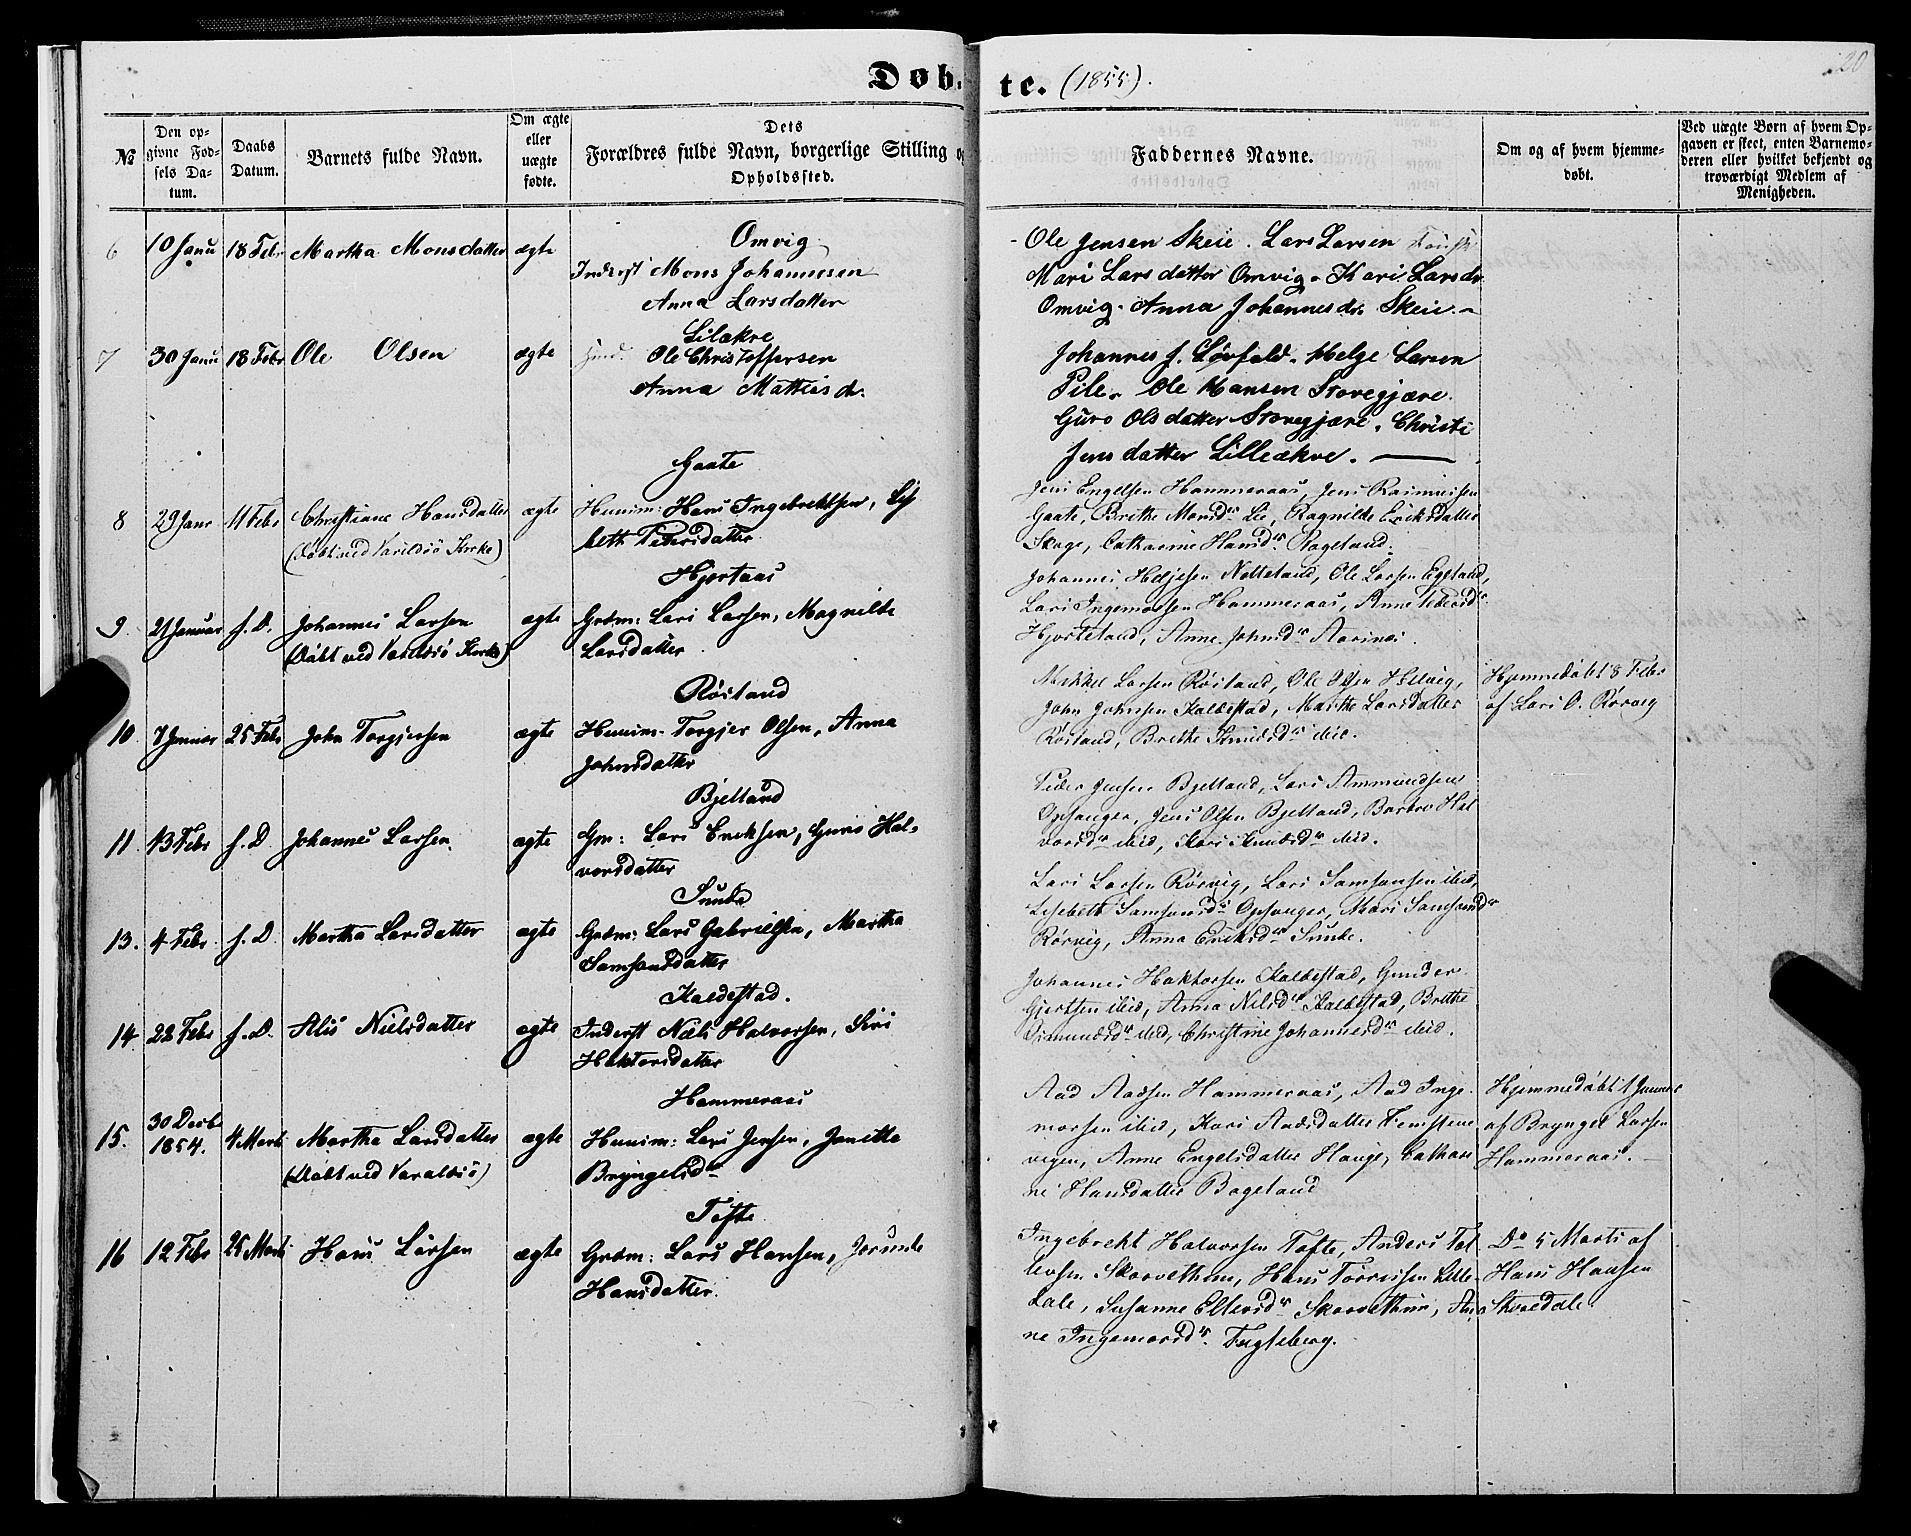 Døb-
te. (1855).
20
№
Den op-
givne Fød-
sels Da-
tum.
Daabs
Datum.
Barnets fulde Navn.
Om ægte
eller
uægte
fødte.
Dets
Forældres fulde Navn, borgerlige Stilling o
Opholdssted.
Faddernes Navne.
Om og af hvem hjemme-
døbt.
Ved uægte Børn af hvem Op-
gaven er skeet, enten Barnemo-
deren eller hvilket bekjendt og
troværdigt Medlem af
Menigheden.
6 10 Janu 18 Febr Martha Monsdatter ægte
Omvig
Inderst Mons Johannesen
Anna Larsdatter
Ole Jensen Skeie. Lars Larsen
Mari Larsdatter Omvig. Kari Larsdr
Omvig. Anna Johannesdr. Skeie.
7 30 Janu 18 Febr Ole Olsen ægte
Lilakre
Ole Christoffersen
Anna Mathiasdr.
Johannes J. Løvfald. Helge Larsen
Pile. Ole Hansen Storegjære.
Guro Olsdatter Storegjære. Christi
Jensdatter Lilleækre.
8 29 Janr 11 Febr Christiane Hansdatter ægte
(Døbt ved Varildsø Kirke)
Gaate
Huusm: Hans Ingebrektsen, Lis
beth Petersdatter
Jens Engelsen Hammeraas, Jens Rasmussen
Gaate, Brithe Monsdr Lie, Ragnilde Eriksdatter
Skage, Catharine Hansdr. Bagetund.
9 21 Januar s. D. Johannes Larsen ægte
(Døbt ved Varildsø Kirke)
Hjortaas
Grdm: Lars Larsen, Magnilde
Larsdatter
Johannes Helgesen Nottetand, Ole Larsen Egeland,
Lars Ingemorsen Hammeraas, Anne
Hjorteland, Anne Johnsdr
10 7 Januar 25 Febr John Torgjersen ægte
Røstand
Huusm. Torgjer Olsen, Anna
Johnsdatter
Mikkel Larsen Røstand, Ole Olsen
John Johnsen Kaldestad, Marthe Larsdatter
Røstand, Brithe Knudsdr ibid.
Hjemmedøbt 8 Febr
af Lars O. Rørvig
11 13 Febr s. D Johannes Larsen ægte
Bjelland
Gm: Lars Eriksen, Guro Hal-
vorsdatter
Peder Jensen Bjelland, Lars Ammundsen
Opsanger, Jens Olsen Bjelland, Barbro Hal
vorsdr ibid, Kari Knudsdr ibid.
13. 4 Febr s. D Martha Larsdatter ægte
Sunde
Grdm: Lars Gabrielsen, Martha
Samsonsdatter
Lars Larsen Rørvig, Lars Samsonsen ibid,
Lisebeth Samsonsdr Opsanger, Mari Samsonsdr
Rørvig, Anna Eriksdr Sunde.
14 22 Febr s. D. Alis Nielsdatter ægte
Kaldestad.
Inderst Nels Halvorsen, Siri
Haktorsdatter
Johannes Haktorsen Kaldestad, Gunder
Gjertsen ibid, Anna Nilsdr Kaldestad, Brithe
ibid, Christine Johannesdr ibid.
15. 30 Decbr
1854. 4 Marts Martha Larsdatter ægte
(Døbt ved Varaldsø)
Hammeraas
Huusm: Lars Jensen, Jonitta
Bryngelsdr
Aad Aadsen Hammeraas, Aad Inge
morsen ibid, Kari Aadsdatter
vigen, Anne Engelsdatter Hauge, Cathari
ne Hansdatter Bagetund
Hjemmedøbt 1 Januar
af Bryngel Larsen
Hammeraas.
16 12 Febr 25 Marts Hans Larsen ægte
Tofte
Grdm: Lars Hansen, Jorunde
Hansdatter
Ingebrekt Halvorsen Tofte, Anders Tol
levsen Skorvethun, Hans Torresen Lille-
dale, Susanne Ellevsdr Skorvethun, An
ne Ingemorsdr. Fugleberg.
Do 5 Marts af
Hans Hansen
Skoredale